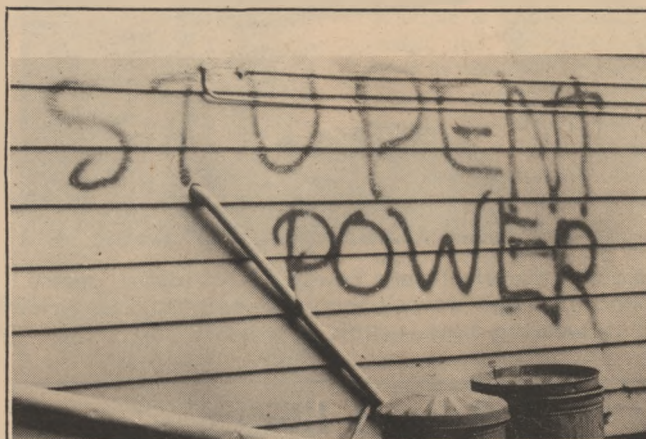 STUPENT
POWER